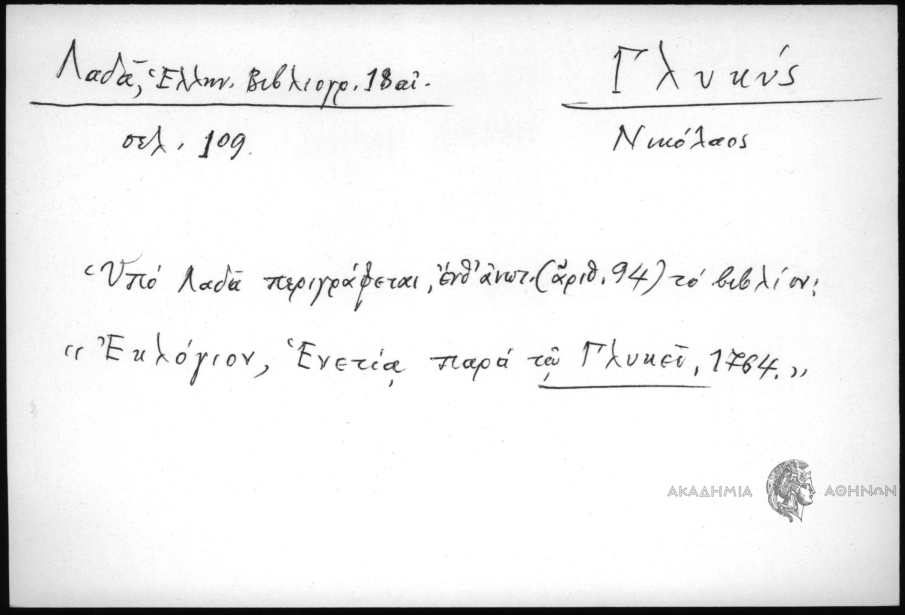 Λαδᾶ, Ἑλλην. Βιβλιογρ. 18 αἰ.
Γλυκύς
σελ. 109.
Νικόλαος
Ὑπό Λαδᾶ περιγράφεται, ἐνθ' ἀνωτ. (ἀριθ. 94) τό βιβλίον:
"Ἐκλόγιον, Ἑνετίᾳ παρά τῷ Γλυκεῖ, 1764."
ΑΚΑΔΗΜΙΑ ΑΘΗΝΩΝ